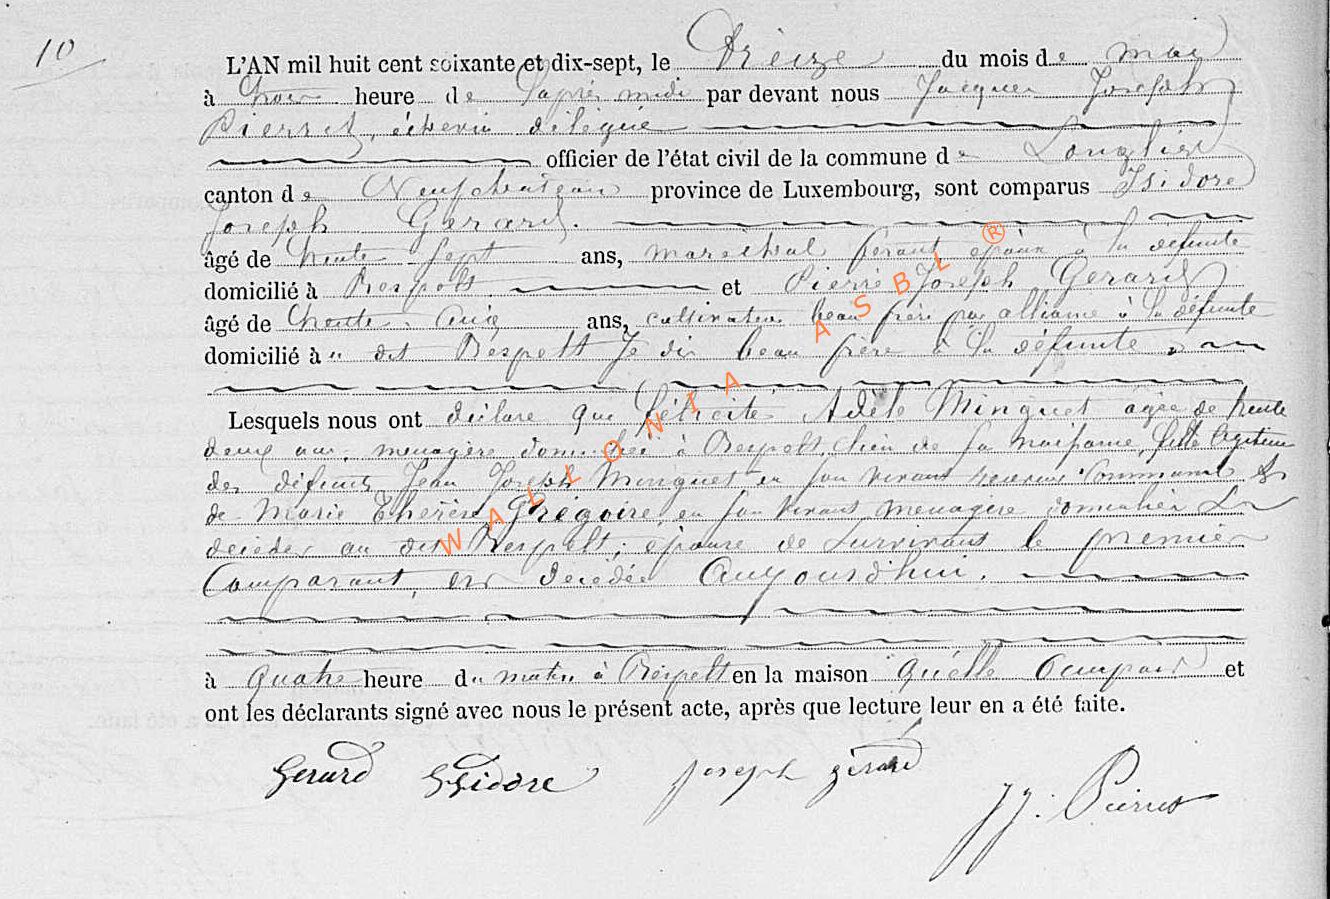 10
L'AN mil huit cent soixante et dix-sept, le Treize du mois de may
à trois heure de l'après midi par devant nous Jacques Joseph
Pierret, échevin délégué
officier de l'état civil de la commune de Longlier
canton de Neufchateau province de Luxembourg, sont comparus Isidore
Joseph Gerard.
âgé de trente sept ans, marechal ferant, epoux à la défunte
domicilié à Respelt et Pierre Joseph Gerard
âgé de trente cinq ans, cultivateur beau frère par alliance à la défunte
domicilié à u dit Respelt se dis beau frère à la défunte
Lesquels nous ont déclaré que Félicité Adèle Minguet agée de trente
deux ans, menagère domiciliée à Respelt, lieu de sa naissance, fille légitime
des défunts Jean Joseph Minguet en son vivant receveur Communal &
de Marie Therèse Grégoire, en son vivant menagère domiciliés &
décédés au dit Respelt, épouse de survivant le premier
Comparant, est décédée aujourd'hui.
à quatre heure du matin à Respelt en la maison qu'elle occupait et
ont les déclarants signé avec nous le présent acte, après que lecture leur en a été faite.
Gerard Isidore joseph gérard
JJ. Pierret
WALLONIA ASBL ®